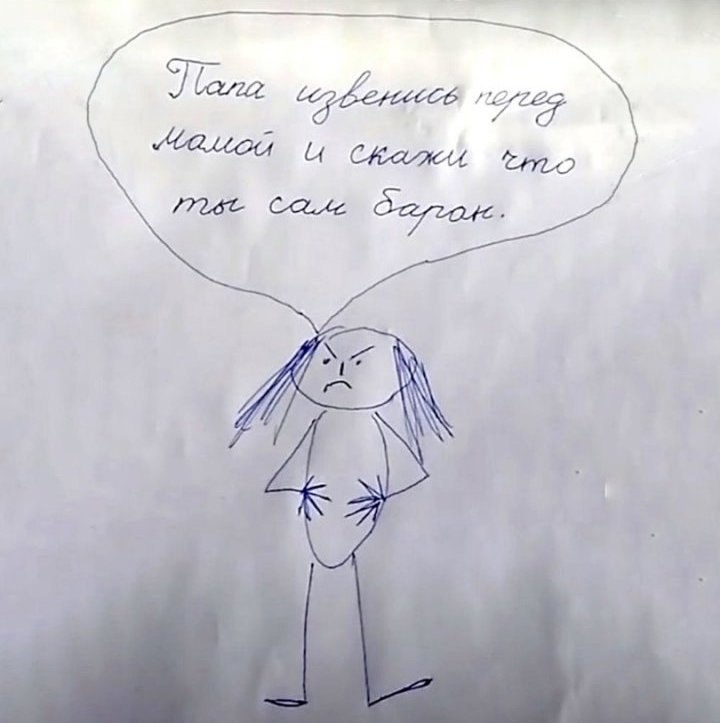 Папа извенись перед
мамой и скажи что
ты сам баран.